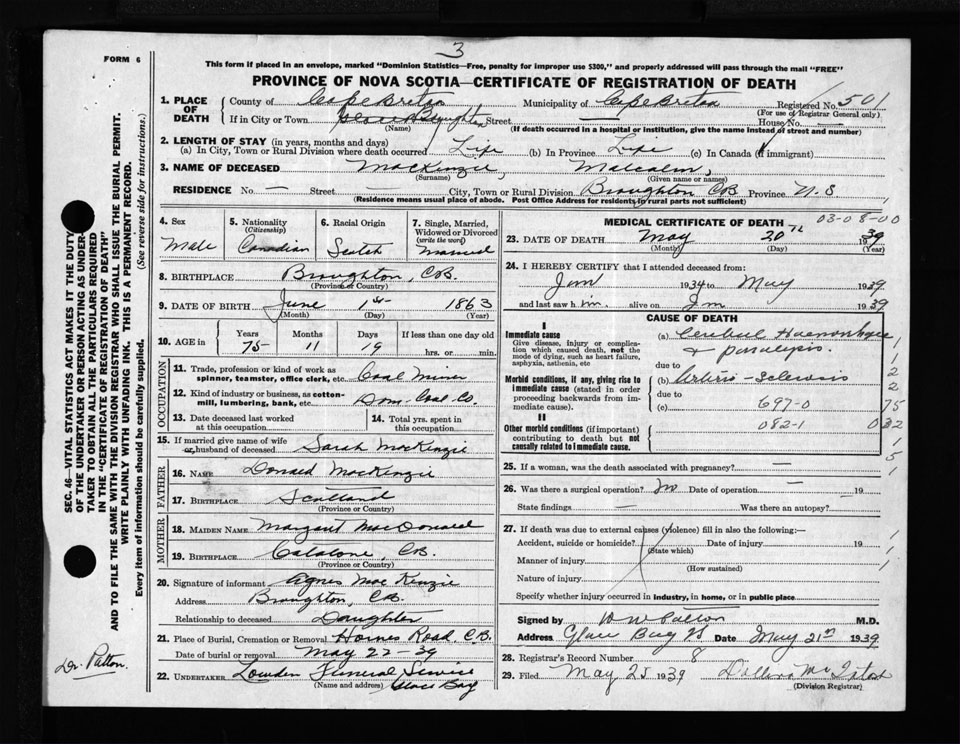 3
FORM 6
This form if placed in an envelope, marked "Dominion Statistics—Free, penalty for improper use $300," and properly addressed will pass through the mail "FREE"
PROVINCE OF NOVA SCOTIA—CERTIFICATE OF REGISTRATION OF DEATH
1. PLACE OF DEATH County of Cape Breton Municipality of Cape Breton Registered No. 501
(For use of Registrar General only)
If in City or Town Broughton Street — House No. —
(Name) (If death occurred in a hospital or institution, give the name instead of street and number)
2. LENGTH OF STAY (in years, months and days)
(a) In City, Town or Rural Division where death occurred Life (b) In Province Life (c) In Canada (if immigrant)
3. NAME OF DECEASED MacKenzie, Malcolm,
(Surname) (Given name or names)
RESIDENCE No. — Street City, Town or Rural Division Broughton CB Province N.S
(Residence means usual place of abode. Post Office Address for residents in rural parts not sufficient)
4. Sex Male
5. Nationality (Citizenship) Canadian
6. Racial Origin Scotch
7. Single, Married, Widowed or Divorced (write the word) Married
8. BIRTHPLACE Broughton, CB.
(Province or Country)
9. DATE OF BIRTH June 1st 1863
(Month) (Day) (Year)
10. AGE in Years 75 Months 11 Days 19 If less than one day old hrs. or min.
OCCUPATION
11. Trade, profession or kind of work as spinner, teamster, office clerk, etc. Coal Miner
12. Kind of industry or business, as cotton-mill, lumbering, bank, etc. Dom. Coal Co.
13. Date deceased last worked at this occupation
14. Total yrs. spent in this occupation
15. If married give name of wife or husband of deceased Sarah MacKenzie
FATHER
16. NAME Donald MacKenzie
17. BIRTHPLACE Scotland
(Province or Country)
MOTHER
18. MAIDEN NAME Margaret MacDonald
19. BIRTHPLACE Catalone, CB.
(Province or Country)
20. Signature of informant Agnes MacKenzie
Address Broughton, CB
Relationship to deceased Daughter
21. Place of Burial, Cremation or Removal Hornes Road, C.B.
Date of burial or removal May 22-39
22. UNDERTAKER Louden Funeral Service
(Name and address) Glace Bay
MEDICAL CERTIFICATE OF DEATH 03-08-00
23. DATE OF DEATH May 20th 1939
(Month) (Day) (Year)
24. I HEREBY CERTIFY that I attended deceased from:
Jan 1934 to May 1939
and last saw h im alive on 1939
CAUSE OF DEATH
I
Immediate cause
Give disease, injury, or complication which caused death, not the mode of dying, such as heart failure, asphyxia, asthenia, etc
(a) Cerebral Haemorrhage
& paralysis.
due to
Morbid conditions, if any, giving rise to immediate cause (stated in order proceeding backwards from immediate cause).
(b) Arterio-Sclerosis
due to
(c) 697-0
II
Other morbid conditions (if important) contributing to death but not causally related to immediate cause.
082-1
1
1
2
2
75
032
1
5
1
25. If a woman, was the death associated with pregnancy? —
26. Was there a surgical operation? No Date of operation — 19
State findings — Was there an autopsy?
27. If death was due to external causes (violence) fill in also the following:—
Accident, suicide or homicide? Date of injury 19
(State which)
Manner of injury
(How sustained)
Nature of injury
Specify whether injury occurred in industry, in home, or in public place
Signed by M.D.
Address Glace Bay NS Date May 21st 1939
28. Registrar's Record Number 8
29. Filed May 25 1939
(Division Registrar)
SEC. 46—VITAL STATISTICS ACT MAKES IT THE DUTY
OF THE UNDERTAKER OR PERSON ACTING AS UNDER-
TAKER TO OBTAIN ALL THE PARTICULARS REQUIRED
IN THE "CERTIFICATE OF REGISTRATION OF DEATH"
AND TO FILE THE SAME WITH THE DIVISION REGISTRAR WHO SHALL ISSUE THE BURIAL PERMIT.
WRITE PLAINLY WITH UNFADING INK. THIS IS A PERMANENT RECORD.
Every item of information should be carefully supplied. (See reverse side for instructions.)
Dr. Patton.